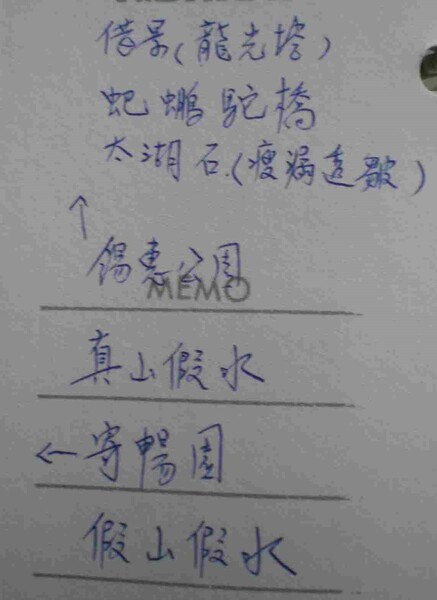 借景(龍光塔)
蚆鵬駝橋
太湖石.(瘦漏透皺)
↑
錫惠公園
MEMO
真山假水
←寄暢園
假山假水